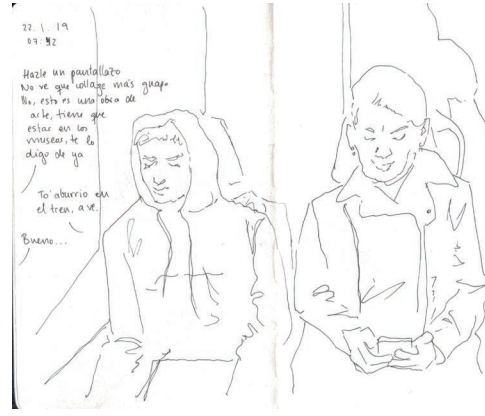 22.1.19
07:32
Hazle un pantallazo
No ve que collage más guapo
No, esto es una obra de
arte, tiene que
estar en los
museos, te lo
digo de ya
To' aburrio en
el tren, a ve.
Bueno...